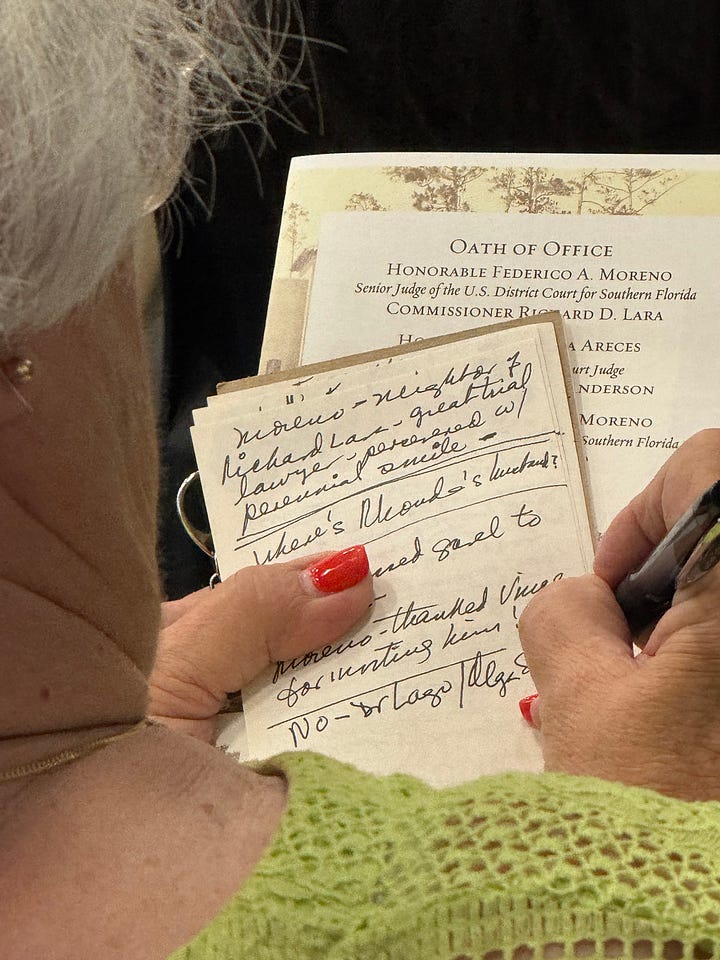 OATH OF OFFICE
HONORABLE FEDERICO A. MORENO
Senior Judge of the U.S. District Court for Southern Florida
COMMISSIONER RICHARD D. LARA
ARECES
urt Judge
NDERSON
MORENO
Southern Florida
Moreno - neighbor of
Richard Lara - great trial
lawyer - persevered w/
perennial smile -
Where's Rhonda's husband?
gavel to
Moreno - thanked Vince
for inviting him!
No - Dr Lago